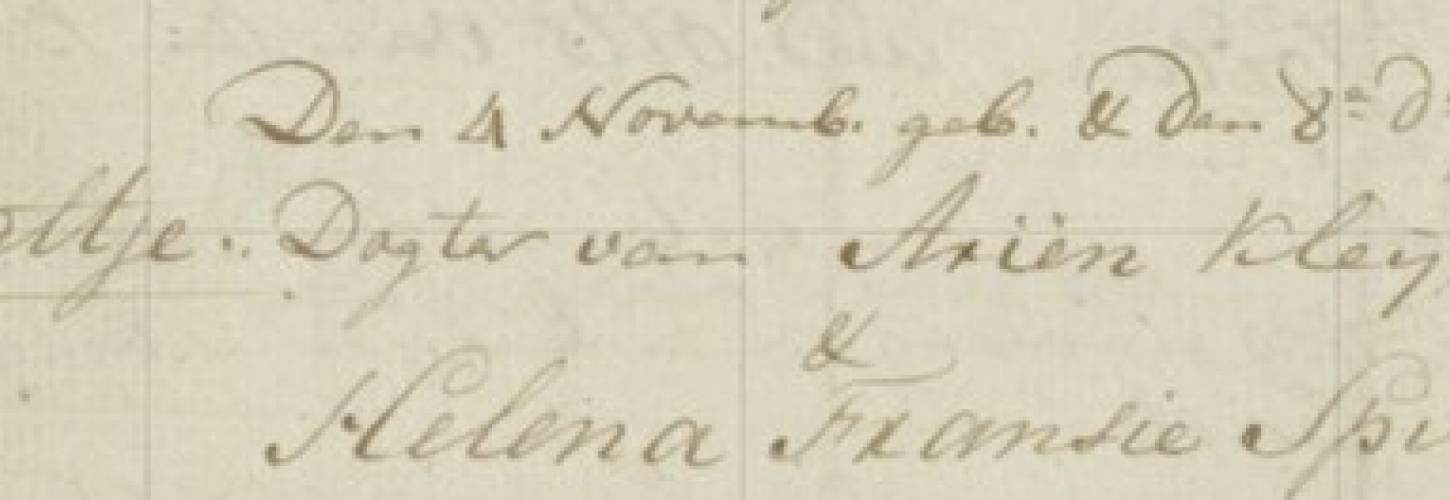 Den 4 Novemb. geb. & den 8e d
eltje. Dogter van Ariën Kleij
&
Helena Fransie Spi